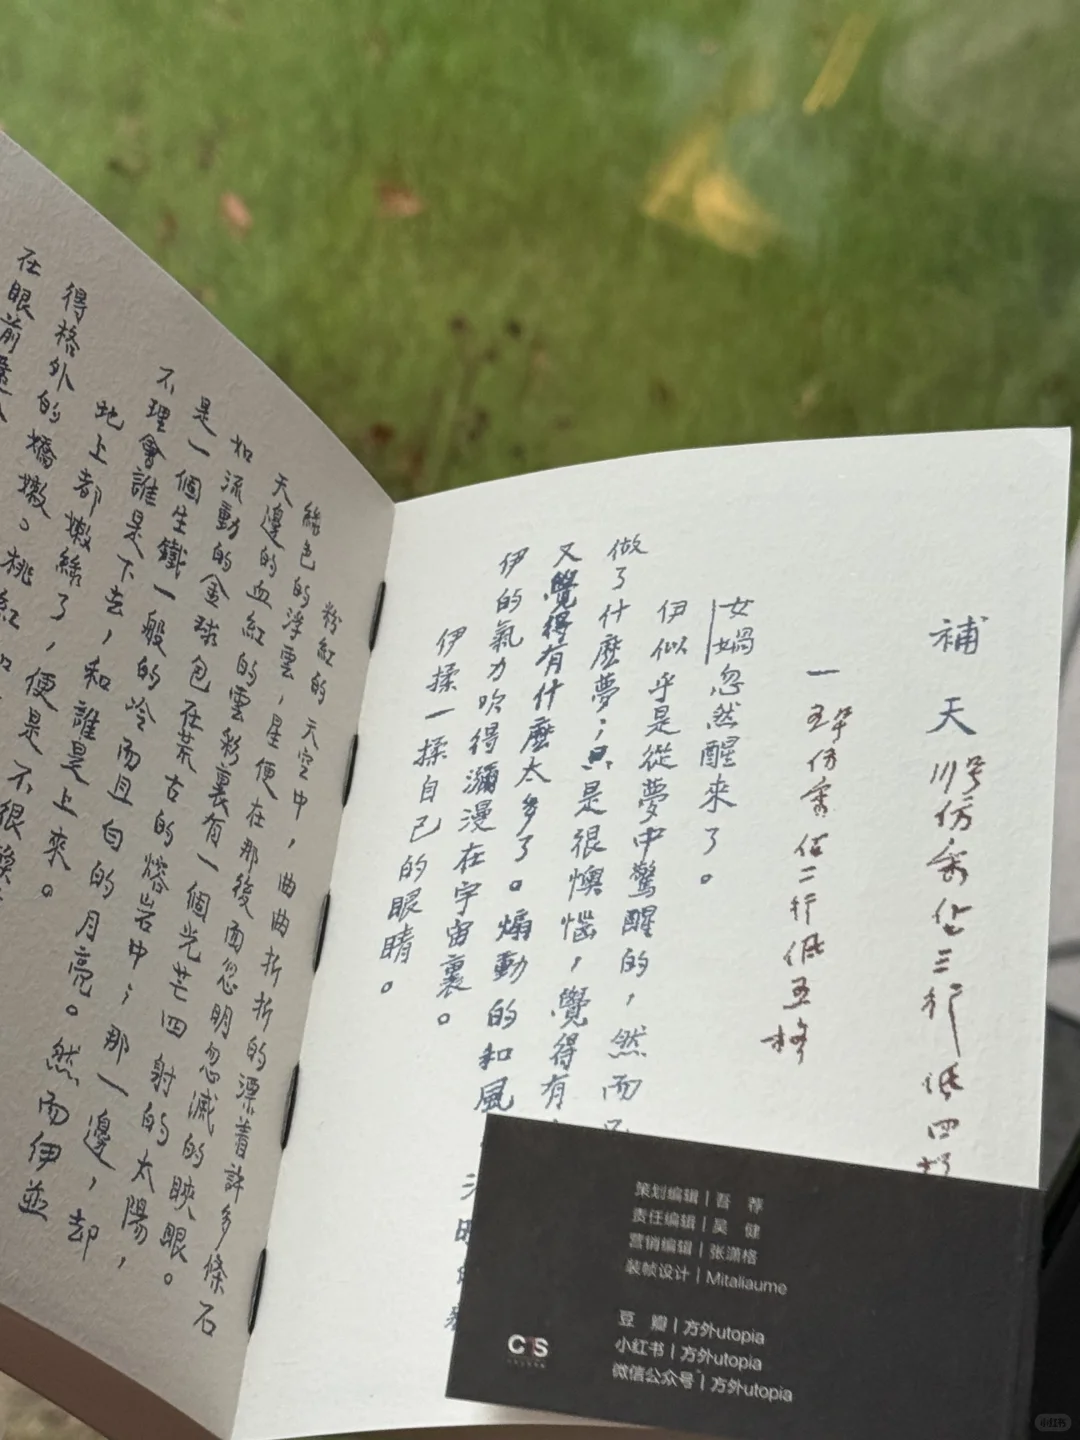 補天 川号仿宋 占三行 低四格
一 五号仿宋 佔二行低五格
女媧忽然醒来了。
伊似乎是從夢中驚醒的，然而
做了什麽夢；只是很懊惱，覺得有
又覺得有什麽太多了。煽動的和風
伊的氣力吹得瀰漫在宇宙裏。
伊揉一揉自己的眼睛。
粉紅的天空中，曲曲折折的漂着許多條石
綠色的浮雲，星便在那後面忽明忽滅的䀹眼。
天邊的血紅的雲彩裏有一個光芒四射的太陽，
如流動的金球包在荒古的熔岩中；那一邊，却
是一個生鐵一般的冷而且白的月亮。然而伊並
不理會誰是下去，和誰是上來。
地上都嫩綠了，便是不很換
得格外的嬌嫩。桃紅
在眼前還
策划编辑｜吾 荐
责任编辑｜吴 健
营销编辑｜张潇格
装帧设计｜Mitaliaume
豆 瓣｜方外utopia
小红书｜方外utopia
微信公众号｜方外utopia
CS
小红书